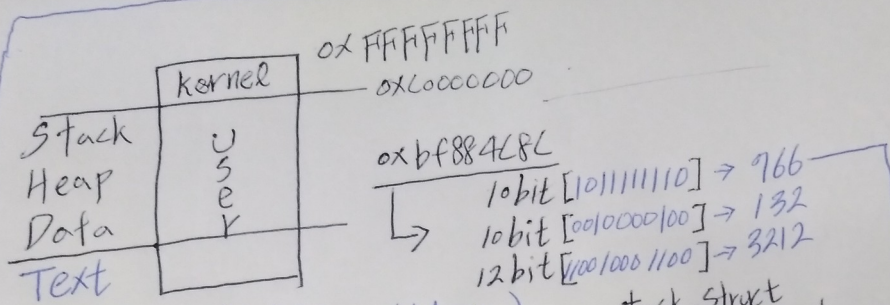 0xFFFFFFFF
kernel
0xC0000000
Stack
User
Heap
Data
Text
0xbf884C8C
10bit [1011111110] → 766
10bit [0010000100] → 132
12bit [110010001100] → 3212
struct